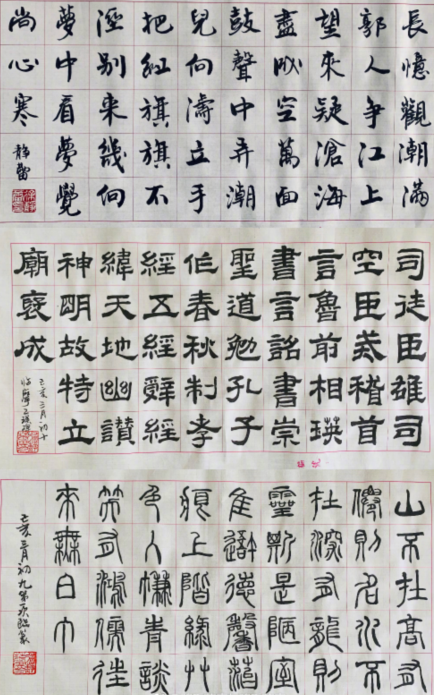 長憶觀潮滿
郭人爭江上
望來疑滄海
盡成空萬面
鼓聲中弄潮
兒向濤立手
把紅旗旗不
溼別來幾向
夢中看夢覺
尚心寒
司徒臣雄司
空臣戒稽首
言魯前相瑛
書言詔書崇
聖道勉孔子
作春秋制孝
經五經辭經
緯天地幽讃
神明故特立
廟褒成
己亥三月初十
山不在高有
僊則名水不
在深有龍則
靈斯是陋室
隹吾德馨苔
痕上階綠艸
色入簾青談
笑有鴻儒往
來無白丁
己亥三月初九